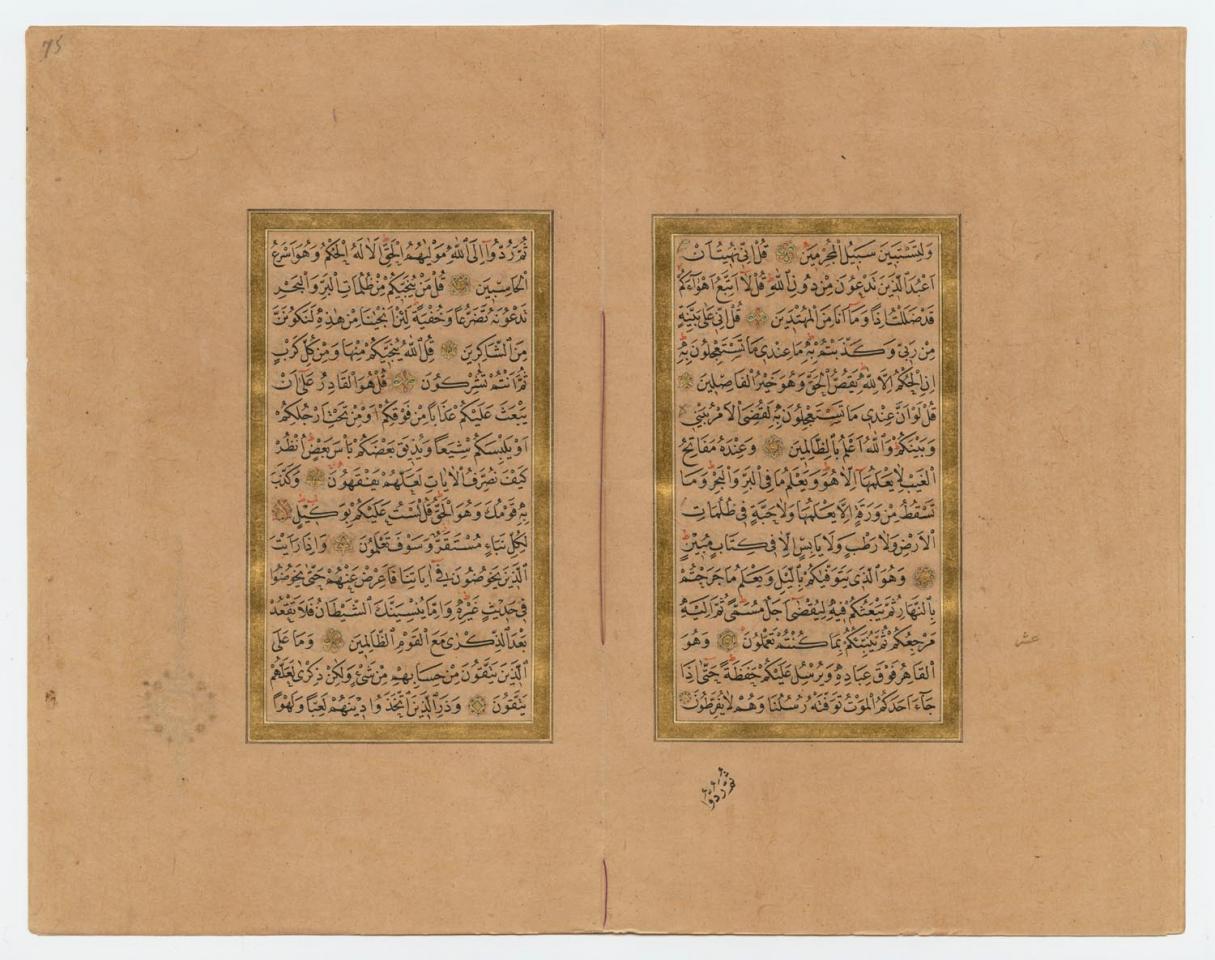 وَلِتَسْتَبِينَ سَبِيلُ الْمُجْرِمِينَ قُلْ اِنّى نُهِيتُ اَنْ
اَعْبُدَ الَّذِينَ تَدْعُونَ مِنْ دُونِ اللّٰهِ قُلْ لَا اَتَّبِعُ اَهْوَاءَكُمْ
قَدْ ضَلَلْتُ اِذًا وَمَا اَنَا مِنَ الْمُهْتَدِينَ قُلْ اِنّى عَلٰى بَيِّنَةٍ
مِنْ رَبّى وَكَذَّبْتُمْ بِهٖ مَا عِنْدى مَا تَسْتَعْجِلُونَ بِهٖ
اِنِ الْحُكْمُ اِلَّا لِلّٰهِ يَقُصُّ الْحَقَّ وَهُوَ خَيْرُ الْفَاصِلِينَ
قُلْ لَوْ اَنَّ عِنْدى مَا تَسْتَعْجِلُونَ بِهٖ لَقُضِىَ الْاَمْرُ بَيْنى
وَبَيْنَكُمْ وَاللّٰهُ اَعْلَمُ بِالظَّالِمِينَ وَعِنْدَهُ مَفَاتِحُ
الْغَيْبِ لَا يَعْلَمُهَا اِلَّا هُوَ وَيَعْلَمُ مَا فِى الْبَرِّ وَالْبَحْرِ وَمَا
تَسْقُطُ مِنْ وَرَقَةٍ اِلَّا يَعْلَمُهَا وَلَا حَبَّةٍ فى ظُلُمَاتِ
الْاَرْضِ وَلَا رَطْبٍ وَلَا يَابِسٍ اِلَّا فى كِتَابٍ مُبِينٍ
وَهُوَ الَّذى يَتَوَفّٰيكُمْ بِالَّيْلِ وَيَعْلَمُ مَا جَرَحْتُمْ
بِالنَّهَارِ ثُمَّ يَبْعَثُكُمْ فِيهِ لِيُقْضٰى اَجَلٌ مُسَمًّى ثُمَّ اِلَيْهِ
مَرْجِعُكُمْ ثُمَّ يُنَبِّئُكُمْ بِمَا كُنْتُمْ تَعْمَلُونَ وَهُوَ
الْقَاهِرُ فَوْقَ عِبَادِهٖ وَيُرْسِلُ عَلَيْكُمْ حَفَظَةً حَتّٰى اِذَا
جَاءَ اَحَدَكُمُ الْمَوْتُ تَوَفَّتْهُ رُسُلُنَا وَهُمْ لَا يُفَرِّطُونَ
ثُمَّ رُدُّوا
75
ثُمَّ رُدُّوا اِلَى اللّٰهِ مَوْلٰيهُمُ الْحَقِّ اَلَا لَهُ الْحُكْمُ وَهُوَ اَسْرَعُ
الْحَاسِبِينَ قُلْ مَنْ يُنَجِّيكُمْ مِنْ ظُلُمَاتِ الْبَرِّ وَالْبَحْرِ
تَدْعُونَهُ تَضَرُّعًا وَخُفْيَةً لَئِنْ اَنْجٰينَا مِنْ هٰذِهٖ لَنَكُونَنَّ
مِنَ الشَّاكِرِينَ قُلِ اللّٰهُ يُنَجِّيكُمْ مِنْهَا وَمِنْ كُلِّ كَرْبٍ
ثُمَّ اَنْتُمْ تُشْرِكُونَ قُلْ هُوَ الْقَادِرُ عَلٰى اَنْ
يَبْعَثَ عَلَيْكُمْ عَذَابًا مِنْ فَوْقِكُمْ اَوْ مِنْ تَحْتِ اَرْجُلِكُمْ
اَوْ يَلْبِسَكُمْ شِيَعًا وَيُذِيقَ بَعْضَكُمْ بَأْسَ بَعْضٍ اُنْظُرْ
كَيْفَ نُصَرِّفُ الْاٰيَاتِ لَعَلَّهُمْ يَفْقَهُونَ وَكَذَّبَ
بِهٖ قَوْمُكَ وَهُوَ الْحَقُّ قُلْ لَسْتُ عَلَيْكُمْ بِوَكِيلٍ
لِكُلِّ نَبَاٍ مُسْتَقَرٌّ وَسَوْفَ تَعْلَمُونَ وَاِذَا رَاَيْتَ
الَّذِينَ يَخُوضُونَ فى اٰيَاتِنَا فَاَعْرِضْ عَنْهُمْ حَتّٰى يَخُوضُوا
فى حَدِيثٍ غَيْرِهٖ وَاِمَّا يُنْسِيَنَّكَ الشَّيْطَانُ فَلَا تَقْعُدْ
بَعْدَ الذِّكْرٰى مَعَ الْقَوْمِ الظَّالِمِينَ وَمَا عَلَى
الَّذِينَ يَتَّقُونَ مِنْ حِسَابِهِمْ مِنْ شَىْءٍ وَلٰكِنْ ذِكْرٰى لَعَلَّهُمْ
يَتَّقُونَ وَذَرِ الَّذِينَ اتَّخَذُوا دِينَهُمْ لَعِبًا وَلَهْوًا